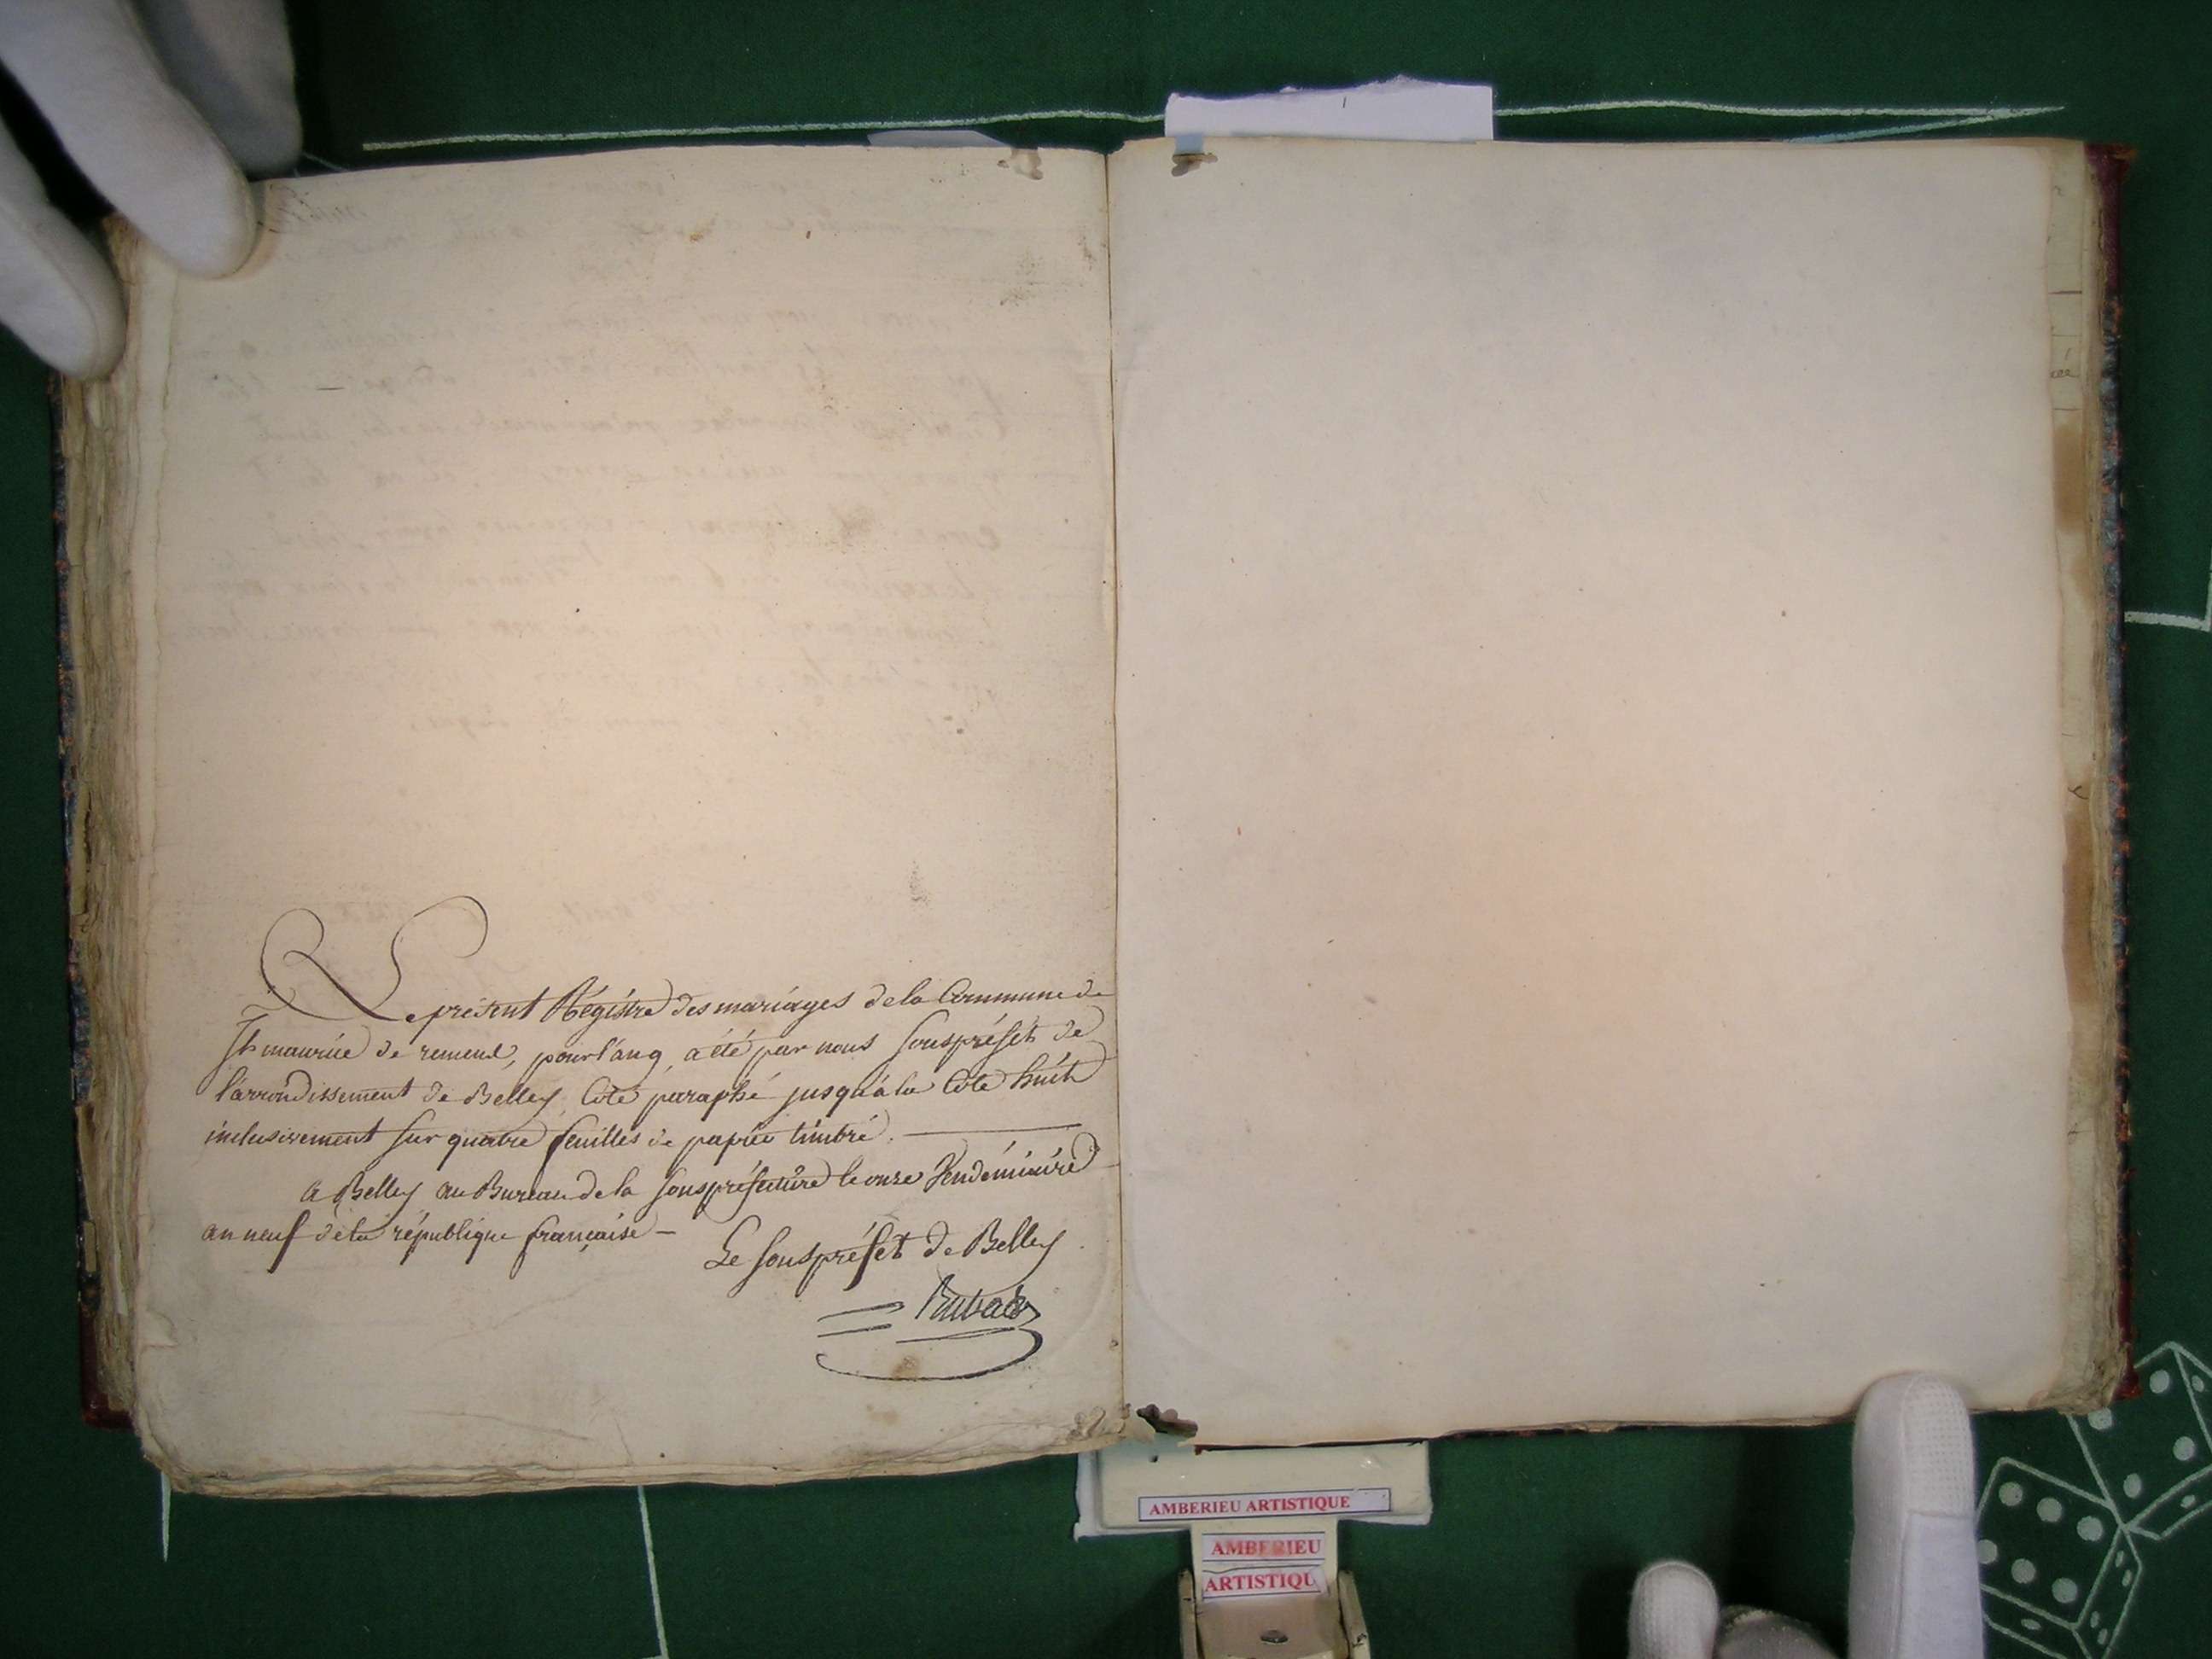 Le présent Régistre des mariages de la Commune de
St maurice de remend, pour l'an 9, a été par nous Souspréfet de
l'arrondissement de Belley, Coté paraphé jusqu'à la Cote huit
inclusivement sur quatre feuilles de papier timbré.
a Belley au Bureau de la Souspréfecture le onze Vendémiaire
an neuf de la république française —
Le Souspréfet de Belley
AMBERIEU ARTISTIQUE
AMBERIEU
ARTISTIQU